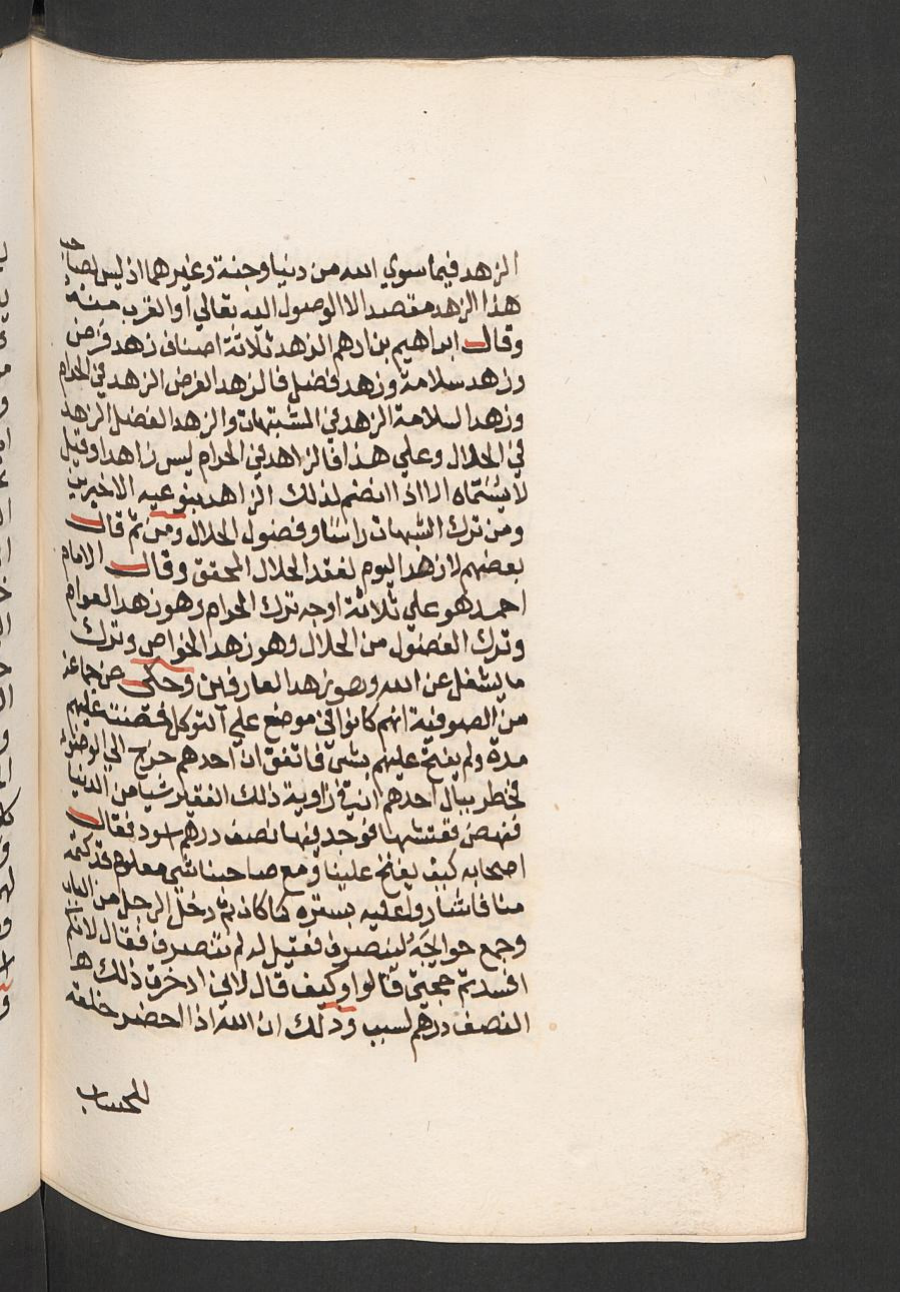 الزهد فيما سوي الله من دنيا وجنة وغيرهما اذ ليس لصاحب
هذا الزهد مقصد الا الوصول اليه تعالي او القرب منه
وقال ابراهيم بن ادهم الزهد ثلاثة اصناف زهد فرض
وزهد سلامة وزهد فضل فالزهد الفرض الزهد في الحرام
وزهد السلامة الزهد في المشتبهات والزهد الفضل الزهد
في الحلال وعلي هذا فالزاهد في الحرام ليس زاهدا وقيل
لا يسماه الا اذا انضم لذلك الزاهد بنوعيه الاخيرين
ومن ترك الشبهات راسا وفضول الحلال ومن ثم قال
بعضهم لا زهد اليوم لفقد الحلال المحقق وقال الامام
احمد هو علي ثلاثة اوجه ترك الحرام وهو زهد العوام
وترك الفضول من الحلال وهو زهد الخواص وترك
ما يشغل عن الله وهو زهد العارفين وحكى عن جماعة
من الصوفية انهم كانوا في موضع علي التوكل فمضت عليهم
مدة ولم يفتح عليهم بشي فاتفق ان احدهم خرج الي الوضوء
فخطر ببال احدهم ان في زاوية ذلك الفقير شيا من الدنيا
فنهض ففتشها فوجد فيها نصف درهم اسود فقال
اصحابه كيف يفتح علينا ومع صاحبنا شي معلوم قد كتمه
منا فاشاروا عليه بستره كما كان ثم دخل الرجل من الباب
وجمع حوايجه لينصرف فقيل له لم تنصرف فقال لانكم
افسدتم حجتي قالوا وكيف قال لاني ادخرت ذلك هذا
النصف درهم لسبب وذلك ان الله اذا احضر خلقه
للحساب